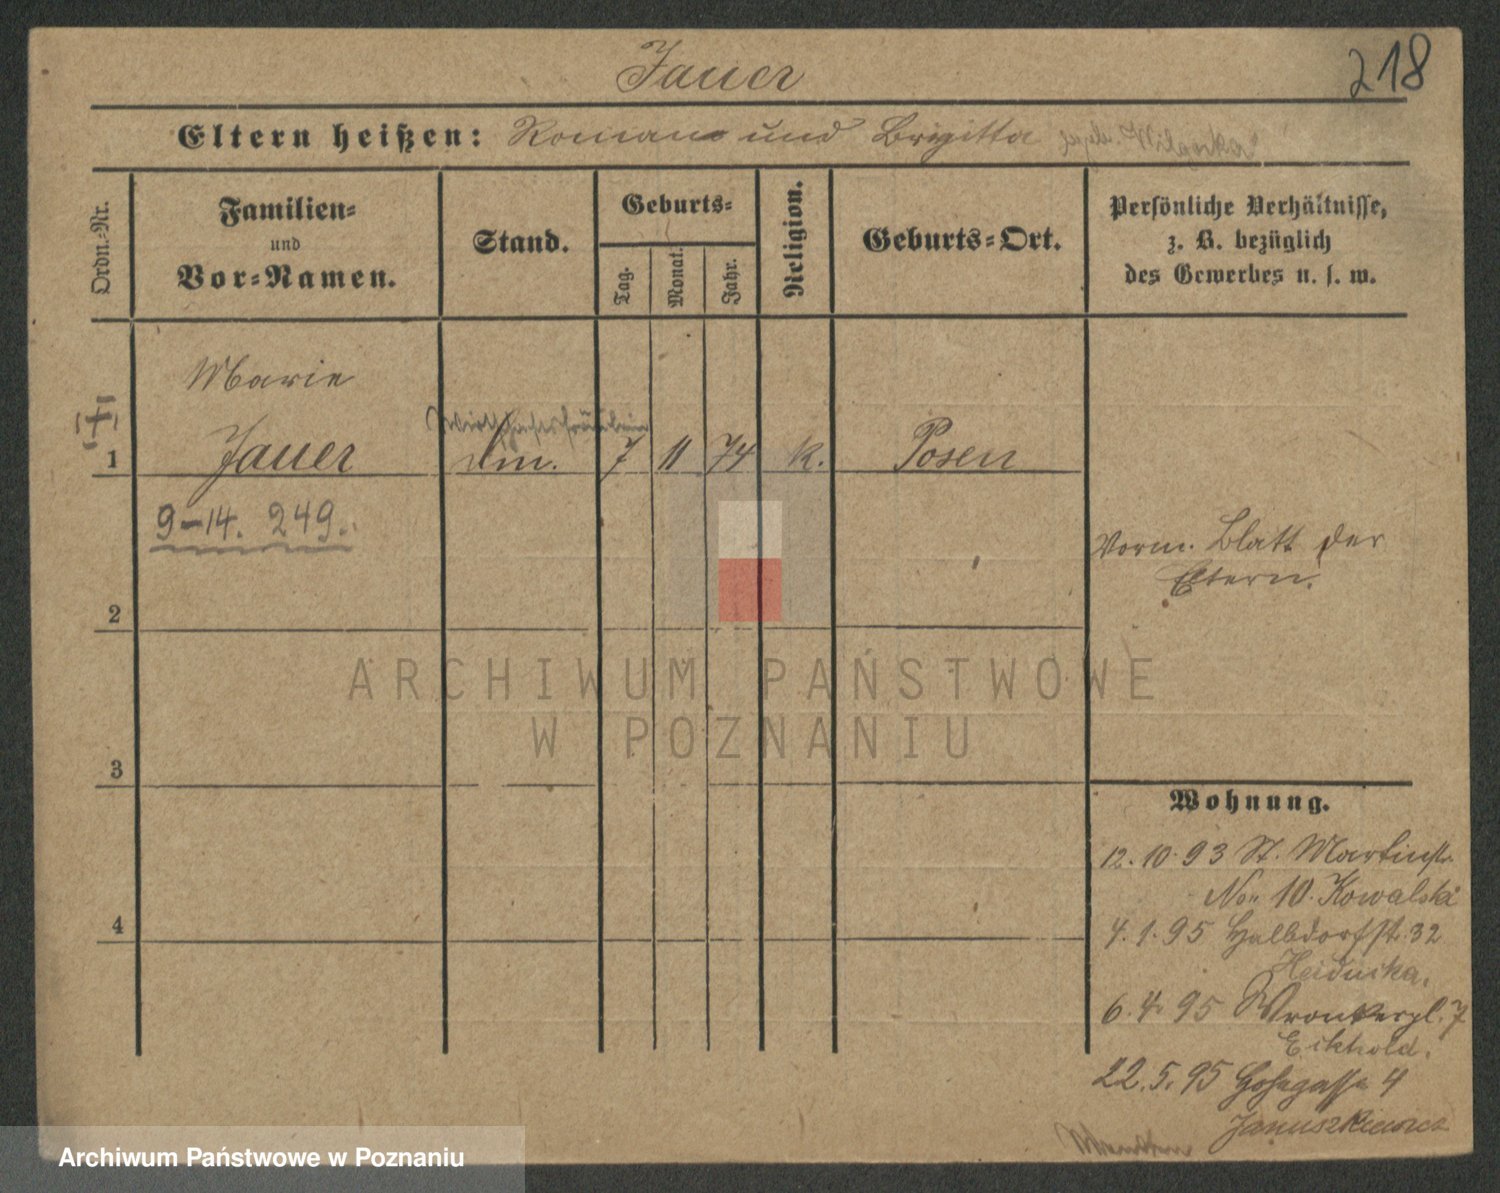 Jauer
218
Eltern heißen: Roman und Brigitta geb. Wilgocka
Ordn.-Nr.
Familien-
und
Vor-Namen.
Stand.
Geburts-
Tag.
Monat.
Jahr.
Religion.
Geburts-Ort.
Persönliche Verhältnisse,
z. B. bezüglich
des Gewerbes u. s. w.
Marie
Wirtschaftsfräulein
1 Jauer 7 11 74 k. Posen
9-14. 249.
Vorm. Blatt der
Eltern.
2
3
4
Wohnung.
12.10.93 St. Martinstr.
No. 10. Kowalski
4.1.95 Halbdorfstr. 32
Heiduika.
6.4.95 Wronkerpl. 7
Eikhold.
22.5.95 Gasse 4
Januszkiewicz
ARCHIWUM PAŃSTWOWE
W POZNANIU
Archiwum Państwowe w Poznaniu